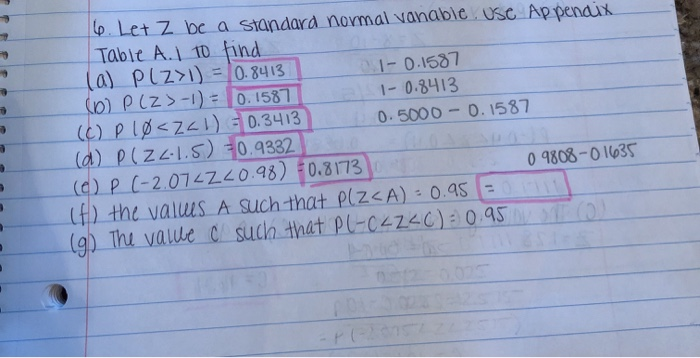 6. Let Z be a standard normal vanable. Use Appendix
Table A.1 to find
(a) P(Z>1) = 0.8413 1-0.1587
(b) P(Z>-1) = 0.1587 1-0.8413
(c) P(Ø<Z<1) = 0.3413 0.5000-0.1587
(d) P(Z<-1.5) = 0.9332
(e) P(-2.07<Z<0.98) = 0.8173 0 9808-01635
(f) the values A such that P(Z<A) = 0.95 =
(g) The value c such that P(-C<Z<C) = 0.95